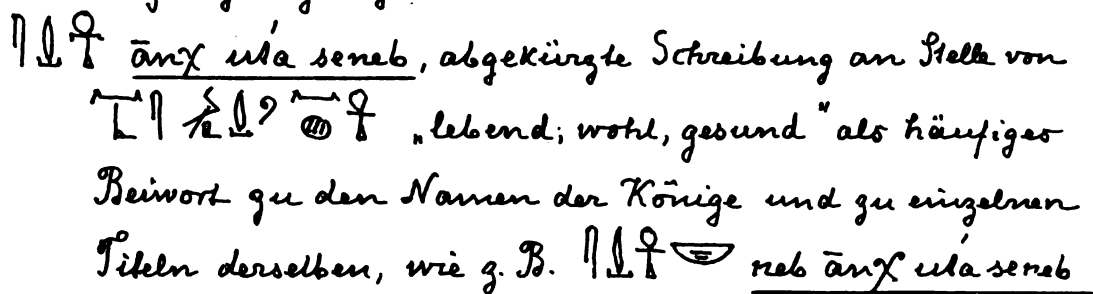 𓋴𓍑𓋹 ānχ ut́a seneb, abgekürzte Schreibung an Stelle von
𓈖𓃀𓋴 𓍑𓏲 𓈖𓐍𓋹 „lebend; wohl, gesund" als häufiges
Beiwort zu den Namen der Könige und zu einzelnen
Titeln derselben, wie z. B. 𓋴𓍑𓋹𓎟 neb ānχ ut́a seneb